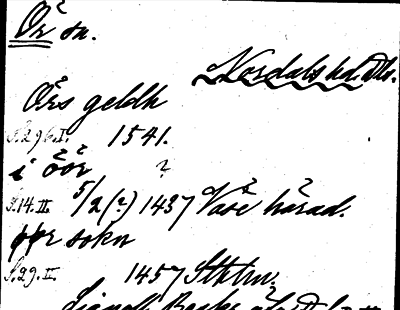 Ör sn.
Nordals hd. Dls.
Örs geldh
S. 296. I. 1541.
i öör ?
S. 14. II. 5/2 (?) 1437 Våre härad.
ppr sokn
S. 29. II. 1457 Sthlm.